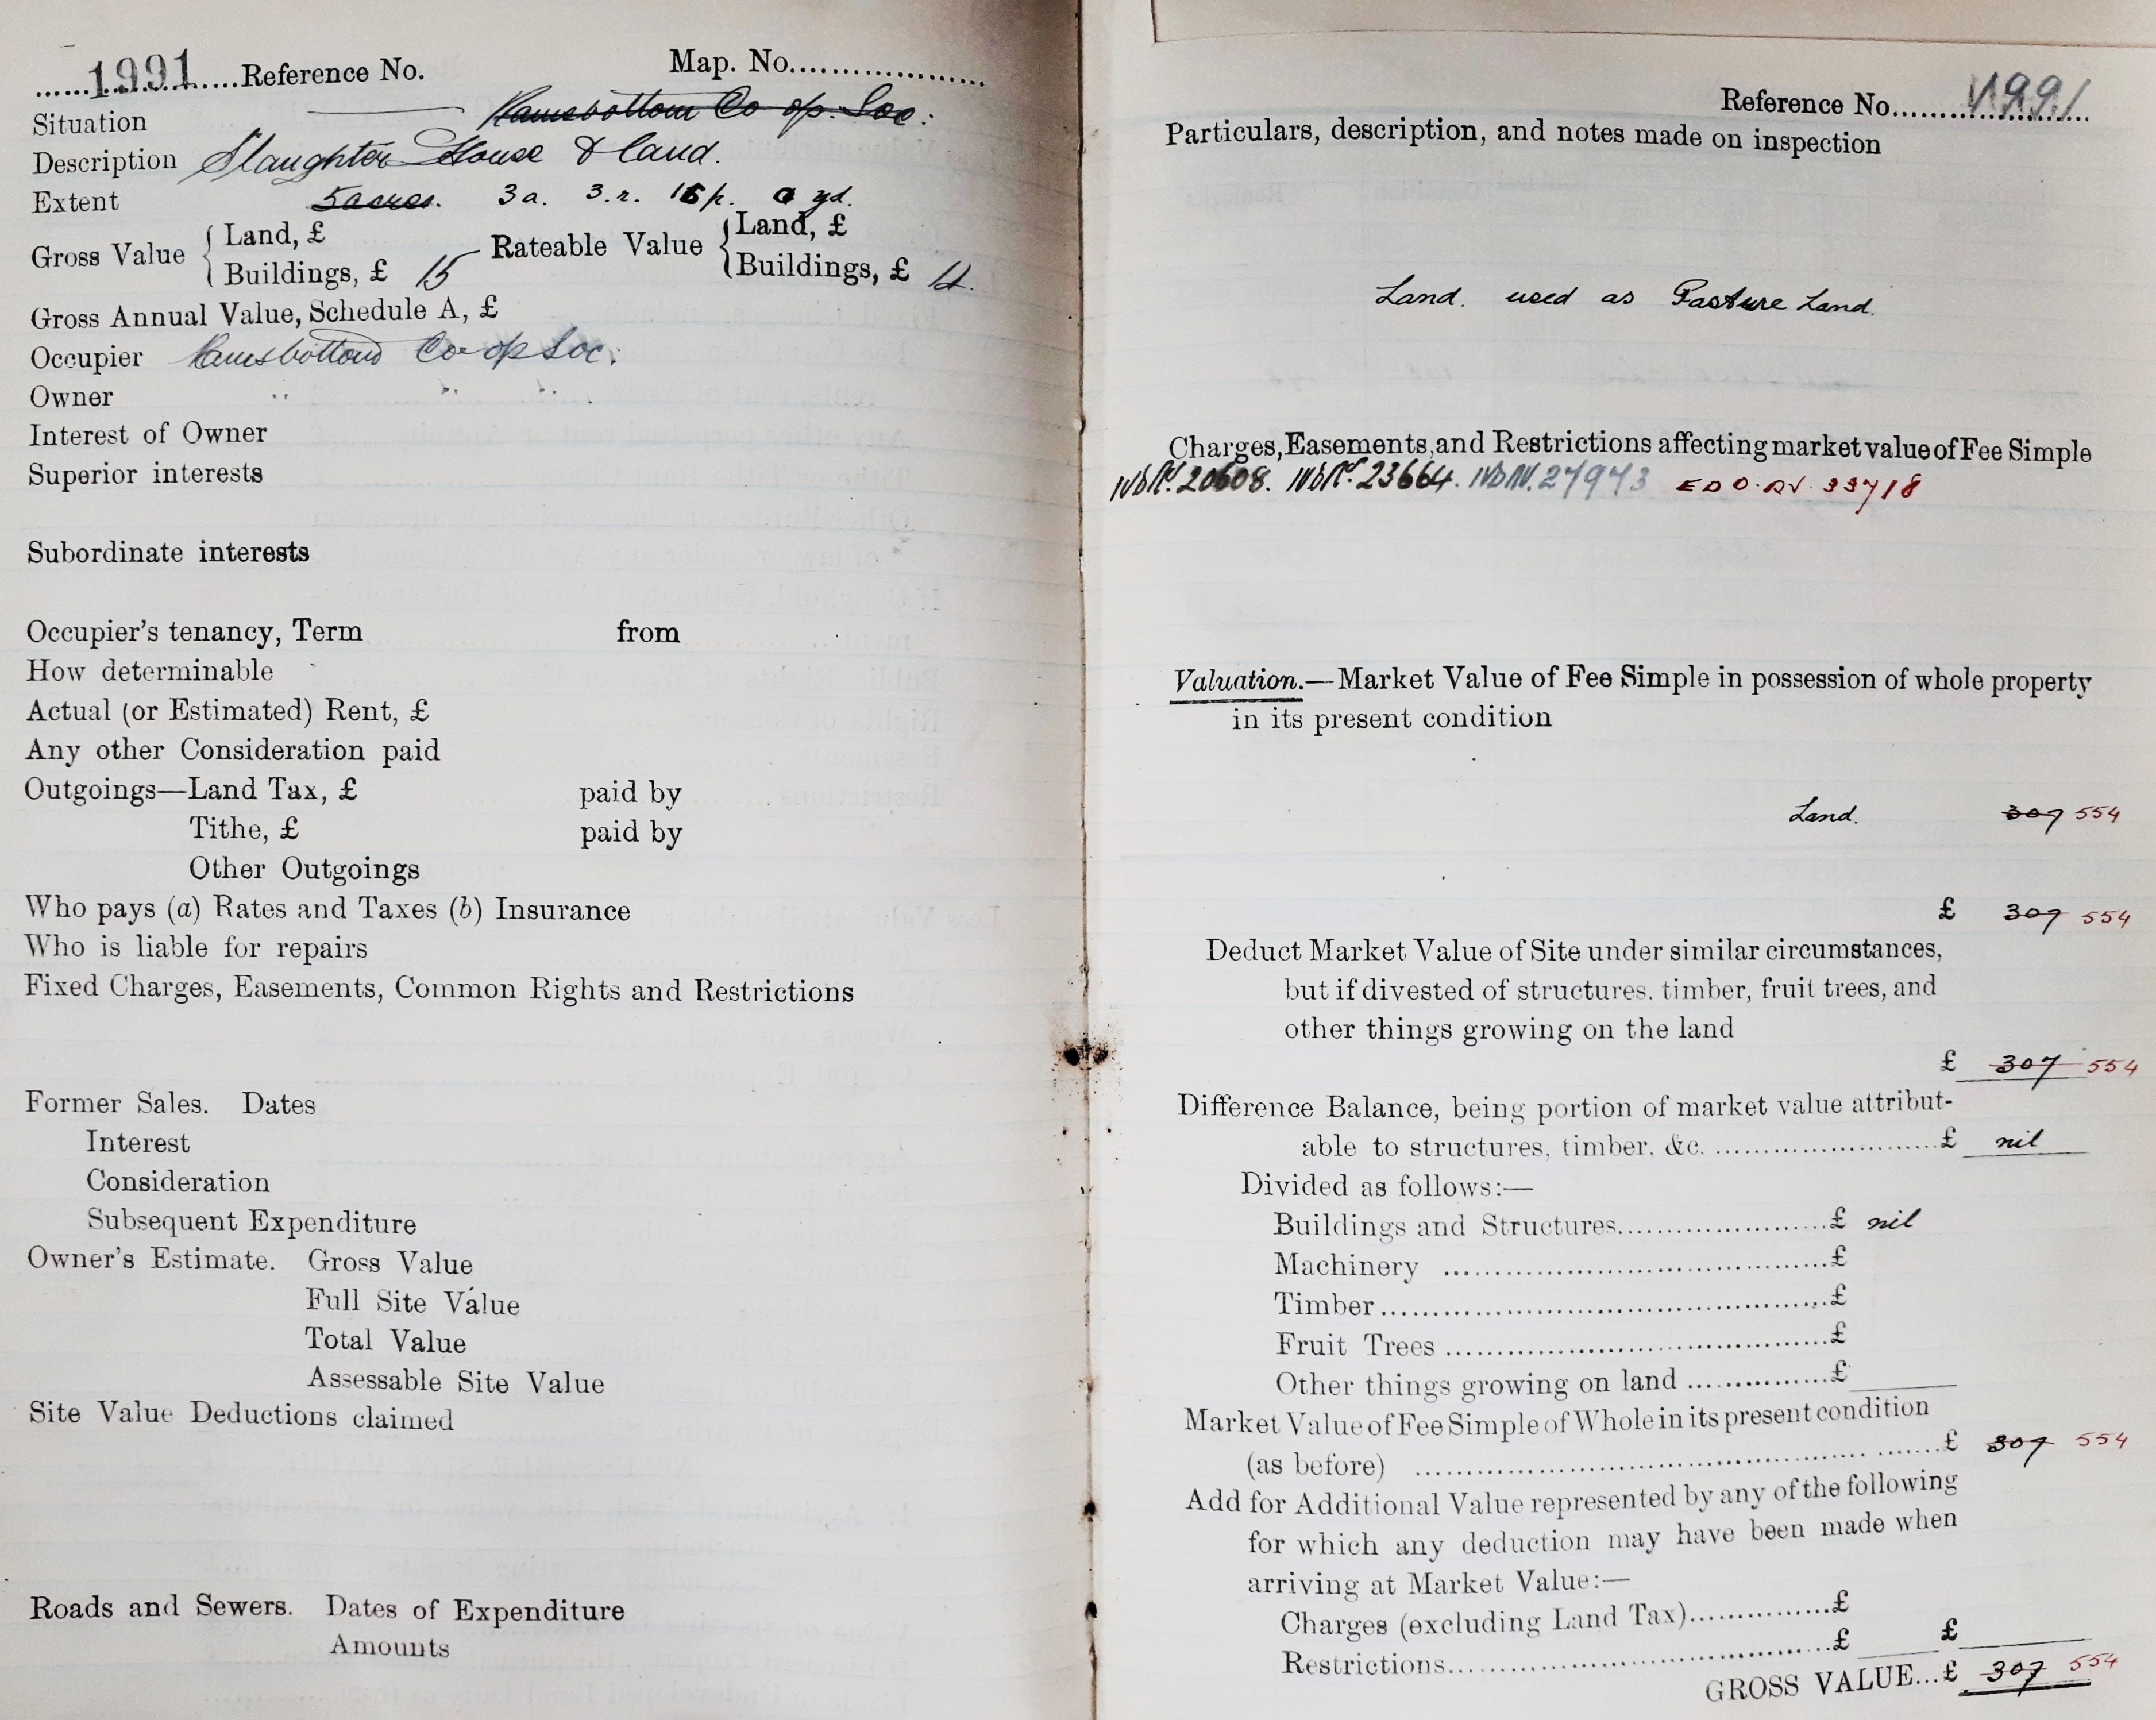 ......1991.....Reference No. Map. No....................
Situation Ramsbottom Co op. Soc:
Description Slaughter House & land.
Extent 5 acres. 3a. 3.r. 16p. 0 yd.
Gross Value { Land, £ Rateable Value { Land, £
Buildings, £ 15 Buildings, £
Gross Annual Value, Schedule A, £
Occupier Ramsbottom Co-op Soc:
Owner " " "
Interest of Owner
Superior interests
Subordinate interests
Occupier's tenancy, Term from
How determinable
Actual (or Estimated) Rent, £
Any other Consideration paid
Outgoings—Land Tax, £ paid by
Tithe, £ paid by
Other Outgoings
Who pays (a) Rates and Taxes (b) Insurance
Who is liable for repairs
Fixed Charges, Easements, Common Rights and Restrictions
Former Sales. Dates
Interest
Consideration
Subsequent Expenditure
Owner's Estimate. Gross Value
Full Site Value
Total Value
Assessable Site Value
Site Value Deductions claimed
Roads and Sewers. Dates of Expenditure
Amounts
Reference No. 1991
Particulars, description, and notes made on inspection
Land. used as Pasture Land.
Charges, Easements, and Restrictions affecting market value of Fee Simple
20608. 23664. 27973 33718
Valuation.—Market Value of Fee Simple in possession of whole property
in its present condition
Land. 307 554
£ 307 554
Deduct Market Value of Site under similar circumstances,
but if divested of structures, timber, fruit trees, and
other things growing on the land
£ 307 554
Difference Balance, being portion of market value attribut-
able to structures, timber, &c. ........................£ nil
Divided as follows:—
Buildings and Structures......................£ nil
Machinery ......................................£
Timber............................................£
Fruit Trees ......................................£
Other things growing on land ...............£
Market Value of Fee Simple of Whole in its present condition
(as before) .............................................£ 307 554
Add for Additional Value represented by any of the following
for which any deduction may have been made when
arriving at Market Value:—
Charges (excluding Land Tax)...............£
Restrictions.......................................£ £
GROSS VALUE...£ 307 554